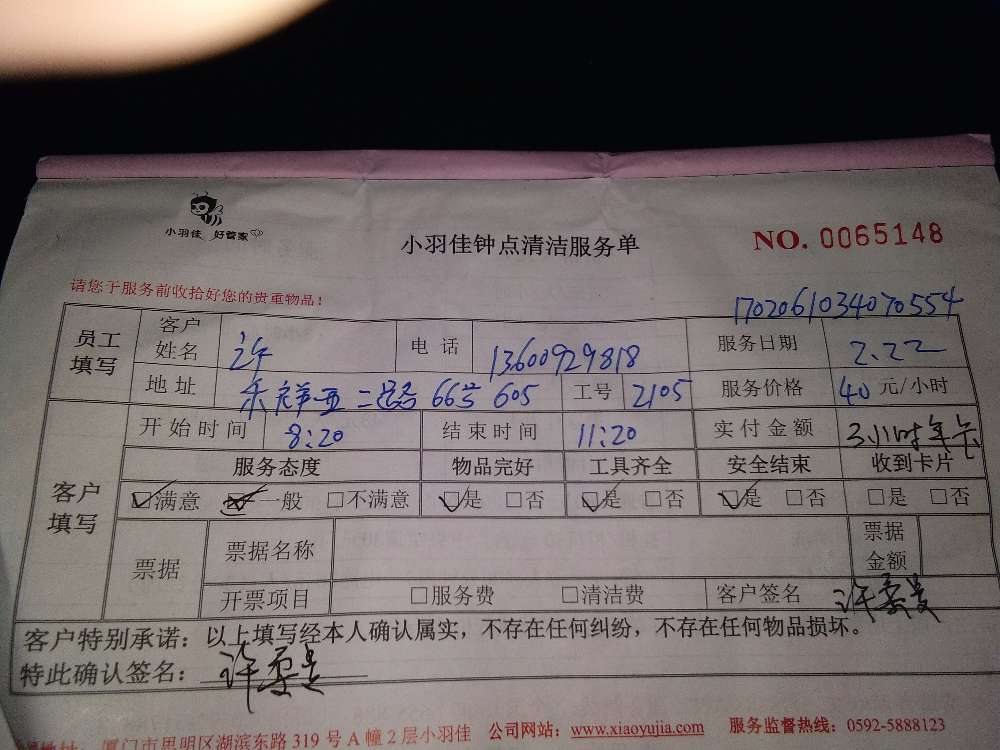 小羽佳 好管家
小羽佳钟点清洁服务单
NO. 0065148
请您于服务前收拾好您的贵重物品!
1702061034070554
员工填写 客户姓名 许 电话 13600929818 服务日期 2.22
地址 祥亚二路66号605 工号 2105 服务价格 40 元/小时
客户填写 开始时间 8:20 结束时间 11:20 实付金额 3小时年卡
服务态度 物品完好 工具齐全 安全结束 收到卡片
☑满意 ☑一般 □不满意 ☑是 □否 ☑是 □否 ☑是 □否 □是 □否
票据 票据名称 票据金额
开票项目 □服务费 □清洁费 客户签名 许
客户特别承诺:以上填写经本人确认属实,不存在任何纠纷,不存在任何物品损坏。
特此确认签名: 许
地址:厦门市思明区湖滨东路 319 号 A 幢 2 层小羽佳 公司网站:www.xiaoyujia.com 服务监督热线:0592-5888123